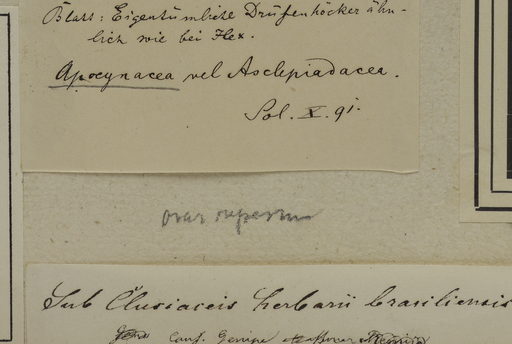 Blatt: Eigentümliche Drüsenhöcker ähn-
lich wie bei Ilex.
Apocynacea vel Asclepiadacea.
Sol. X. 91.
ovar
Sub Clusiaceis herbarii brasiliensis
Conf.